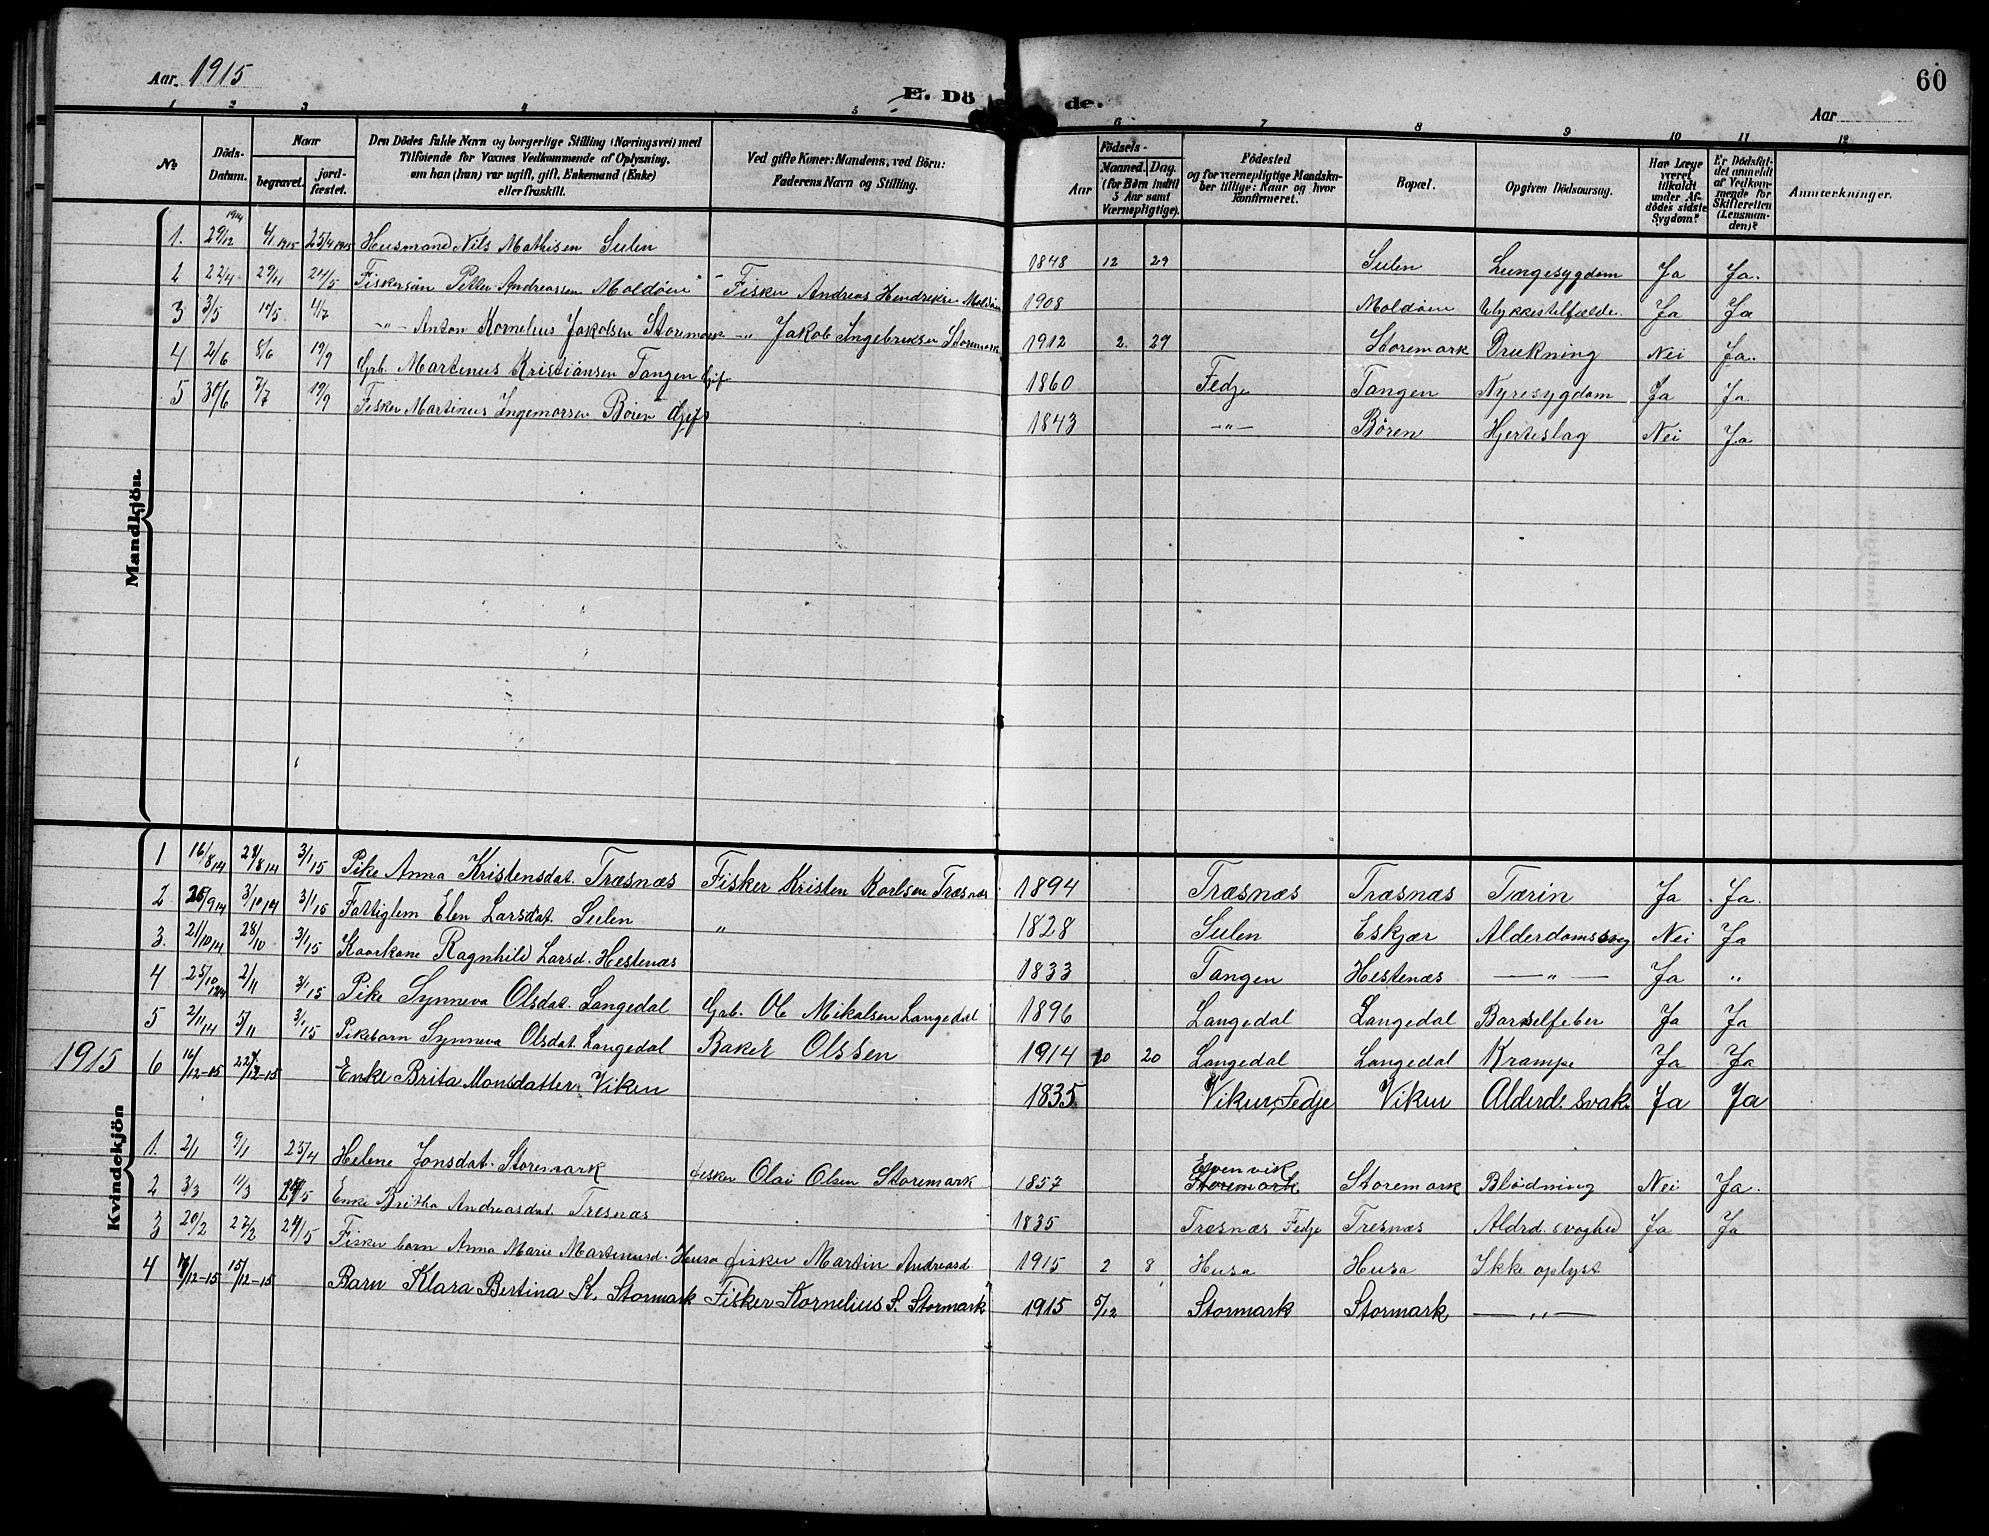 Aar. 1915
E. Dö de.
Aar
60
1 2 3 4 5 6 7 8 9 10 11 12
No
Döds-Datum.
Naar
begravet.
jord-fæstet.
Den Dödes fulde Navn og borgerlige Stilling (Næringsvei) med
Tilföiende for Voxnes Vedkommende af Oplysning,
om han (hun) var ugift, gift, Enkemand (Enke)
eller fraskilt.
Ved gifte Koner: Mandens, ved Börn:
Faderens Navn og Stilling.
Födsels-
Aar
Maaned. Dag.
(for Börn indtil
5 Aar samt
Værnepligtige).
Födested
og for værnepligtige Mandska-
ber tillige: Naar og hvor
konfirmeret.
Bopæl.
Opgiven Dödsaarsag.
Har Læge
været
tilkaldt
under Af-
dödes sidste
Sygdom?
Er Dödsfal-
det anmeldt
af Vedkom-
mende for
Skifteretten
(Lensman-
den)?
Anmærkninger.
Mandkjön.
1. 29/12 1914 6/1 1915 25/4 1915 Husmand Nils Mathisen Sulen 1848 12 29 Sulen Lungesygdom Ja Ja.
2 22/4 29/4 24/5 Fiskersön Petter Andreassen Moldöen Fisker Andreas Hendriksen Moldöen 1908 Moldöen Ulykkestilfælde. Ja Ja
3 3/5 10/5 4/7 -"- Anton Kornelius Jakobsen Storemark -"- Jakob Ingebriksen Storemark 1912 2. 29 Storemark Drukning Nei Ja.
4 2/6 8/6 19/9 Grb. Martinus Kristiansen Tangen Gift 1860 Fedje Tangen Nyresygdom Ja Ja.
5 30/6 7/7 19/9 Fisker Martinus Ingemorsen Bören Gift 1843 -"- Bören Hjerteslag Nei Ja
Kvindekjön
1 16/8 14 24/8 14 3/1 15 Pike Anna Kristensdat. Træsnæs Fisker Kristen Karlsen Træsnæs 1894 Træsnæs Træsnæs Tærin Ja Ja.
2 26/9 14 3/10 14 3/1 15 Fattiglem Elen Larsdat. Sulen " 1828 Sulen Eskjær Alderdomssvag Nei Ja
3. 21/10 14 28/10 3/1 15 Kaarkone Ragnhild Larsd. Hestenæs 1833 Tangen Hestenæs -"- Ja "
4 25/10 1914 2/11 3/1 15 Pike Synneva Olsdat. Langedal Grb. Ole Mikalsen Langedal 1896 Langedal Langedal Barselfeber Ja Ja
5 2/11 14 5/11 3/1 15 Pikebarn Synneva Olsdat. Langedal Baker Olssen 1914 10 20 Langedal Langedal Krampe Ja Ja
1915 6 16/12-15 22/12-15 Enke Brita Monsdatter Viken 1835 Viken, Fedje Viken Alderd. svak. Ja Ja
1. 2/1 9/1 25/4 Helene Jonsdat. Storemark fisker Olai Olsen Storemark 1857 Evenvik Storemark Storemark Blödning Nei Ja.
2 3/3 11/3 24/5 Enke Britha Andreasdat Tresnæs 1835 Tresnæs Fedje Tresnæs Aldrd. svaghed Ja Ja
3 20/2 27/2 24/5 Fisker barn Anna Marie Martinusd. Husa fisker Martin Andreasd 1915 2 8 Husa Husa Ikke oplyst
4 /12-15 15/12-15 Barn Klara Bertina K. Stormark Fisker Kornelius S. Stormark 1915 5/12 Stormark Stormark -"-